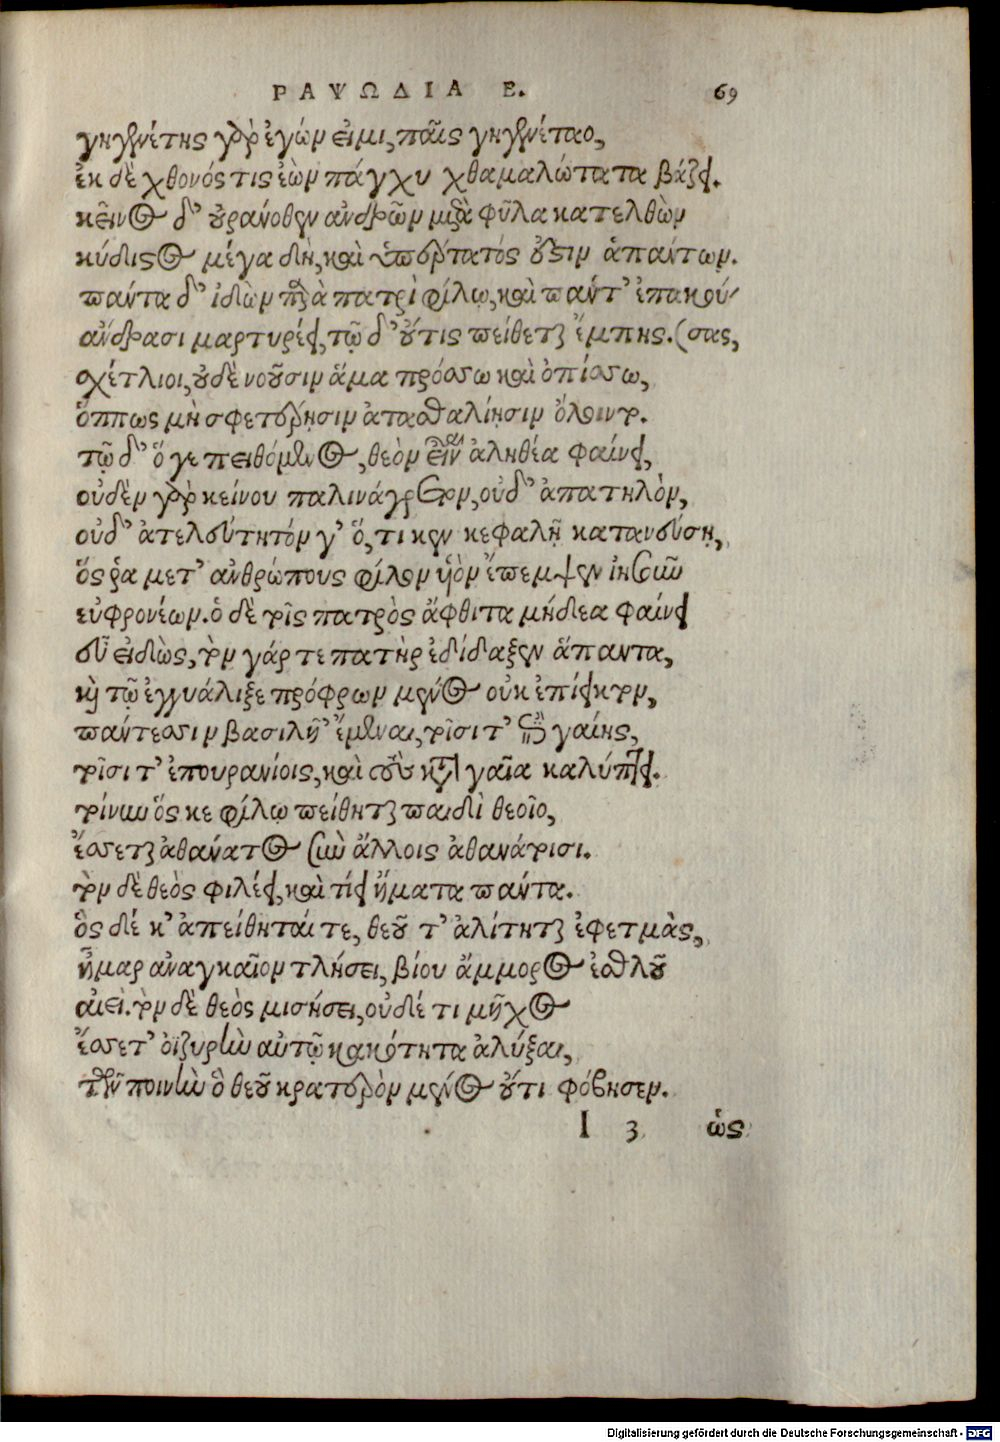 ΡΑΨΩΔΙΑ Ε. 69
γηγενέτης γὰρ ἐγών εἰμι, παῖς γηγενέταο,
ἐκ δὲ χθονός τις ἐὼν πάγχυ χθαμαλώτατα βάζει.
κεῖνος δ' οὐρανόθεν ἀνδρῶν μετὰ φῦλα κατελθὼν
κύδιστος μέγα δὴ, καὶ ὑπέρτατός ἐστιν ἁπάντων.
πάντα δ' ἰδὼν παρὰ πατρὶ φίλῳ, καὶ πάντ' ἐπακού-
ἀνδράσι μαρτυρεῖ, τῷ δ' οὔτις πείθεται ἔμπης. (σας,
σχέτλιοι, οὐδὲ νοοῦσιν ἅμα πρόσσω καὶ ὀπίσσω,
ὅππως μὴ σφετέρῃσιν ἀτασθαλίῃσιν ὄλοιντο.
τῷ δ' ὅ γε πειθόμενος, θεὸν εἶναι ἀληθέα φαίνει,
οὐδὲν γὰρ κείνου παλινάγρετον, οὐδ' ἀπατηλὸν,
οὐδ' ἀτελεύτητόν γ' ὅ, τι κεν κεφαλῇ κατανεύσῃ,
ὅς ῥα μετ' ἀνθρώπους φίλον ὑὸν ἔπεμψεν ἰησοῦν
εὐφρονέων. ὁ δὲ τοῖς πατρὸς ἄφθιτα μήδεα φαίνει
εὖ εἰδὼς, τὸν γάρ τε πατὴρ ἐδίδαξεν ἅπαντα,
καὶ τῷ ἐγγυάλιξε πρόφρων μένος οὐκ ἐπίεικτον,
πάντεσσιν βασιλῆ' ἔμεναι, τοῖσι τ' ἐπὶ γαίης,
τοῖσι τ' ἐπουρανίοις, καὶ οὓς κατὰ γαῖα καλύπτει.
τοίνυν ὅς κε φίλῳ πείθηται παιδὶ θεοῖο,
ἔσσεται ἀθάνατος σὺν ἄλλοις ἀθανάτοισι.
τὸν δὲ θεὸς φιλέει, καὶ τίει ἤματα πάντα.
ὃς δέ κ' ἀπείθηταί τε, θεοῦ τ' ἀλίτηται ἐφετμὰς,
ἦμαρ ἀναγκαῖον τλήσει, βίου ἄμμορος ἐσθλοῦ
αἰεὶ. τὸν δὲ θεὸς μισήσει, οὐδέ τι μῆχος
ἔσσετ' ὀϊζυρὴν αὐτῷ κακότητα ἀλύξαι,
τὴν ποινὴν ὃ θεοῦ κρατερὸν μένος οὔτι φόβησεν.
I 3 ὡς
Digitalisierung gefördert durch die Deutsche Forschungsgemeinschaft - DFG